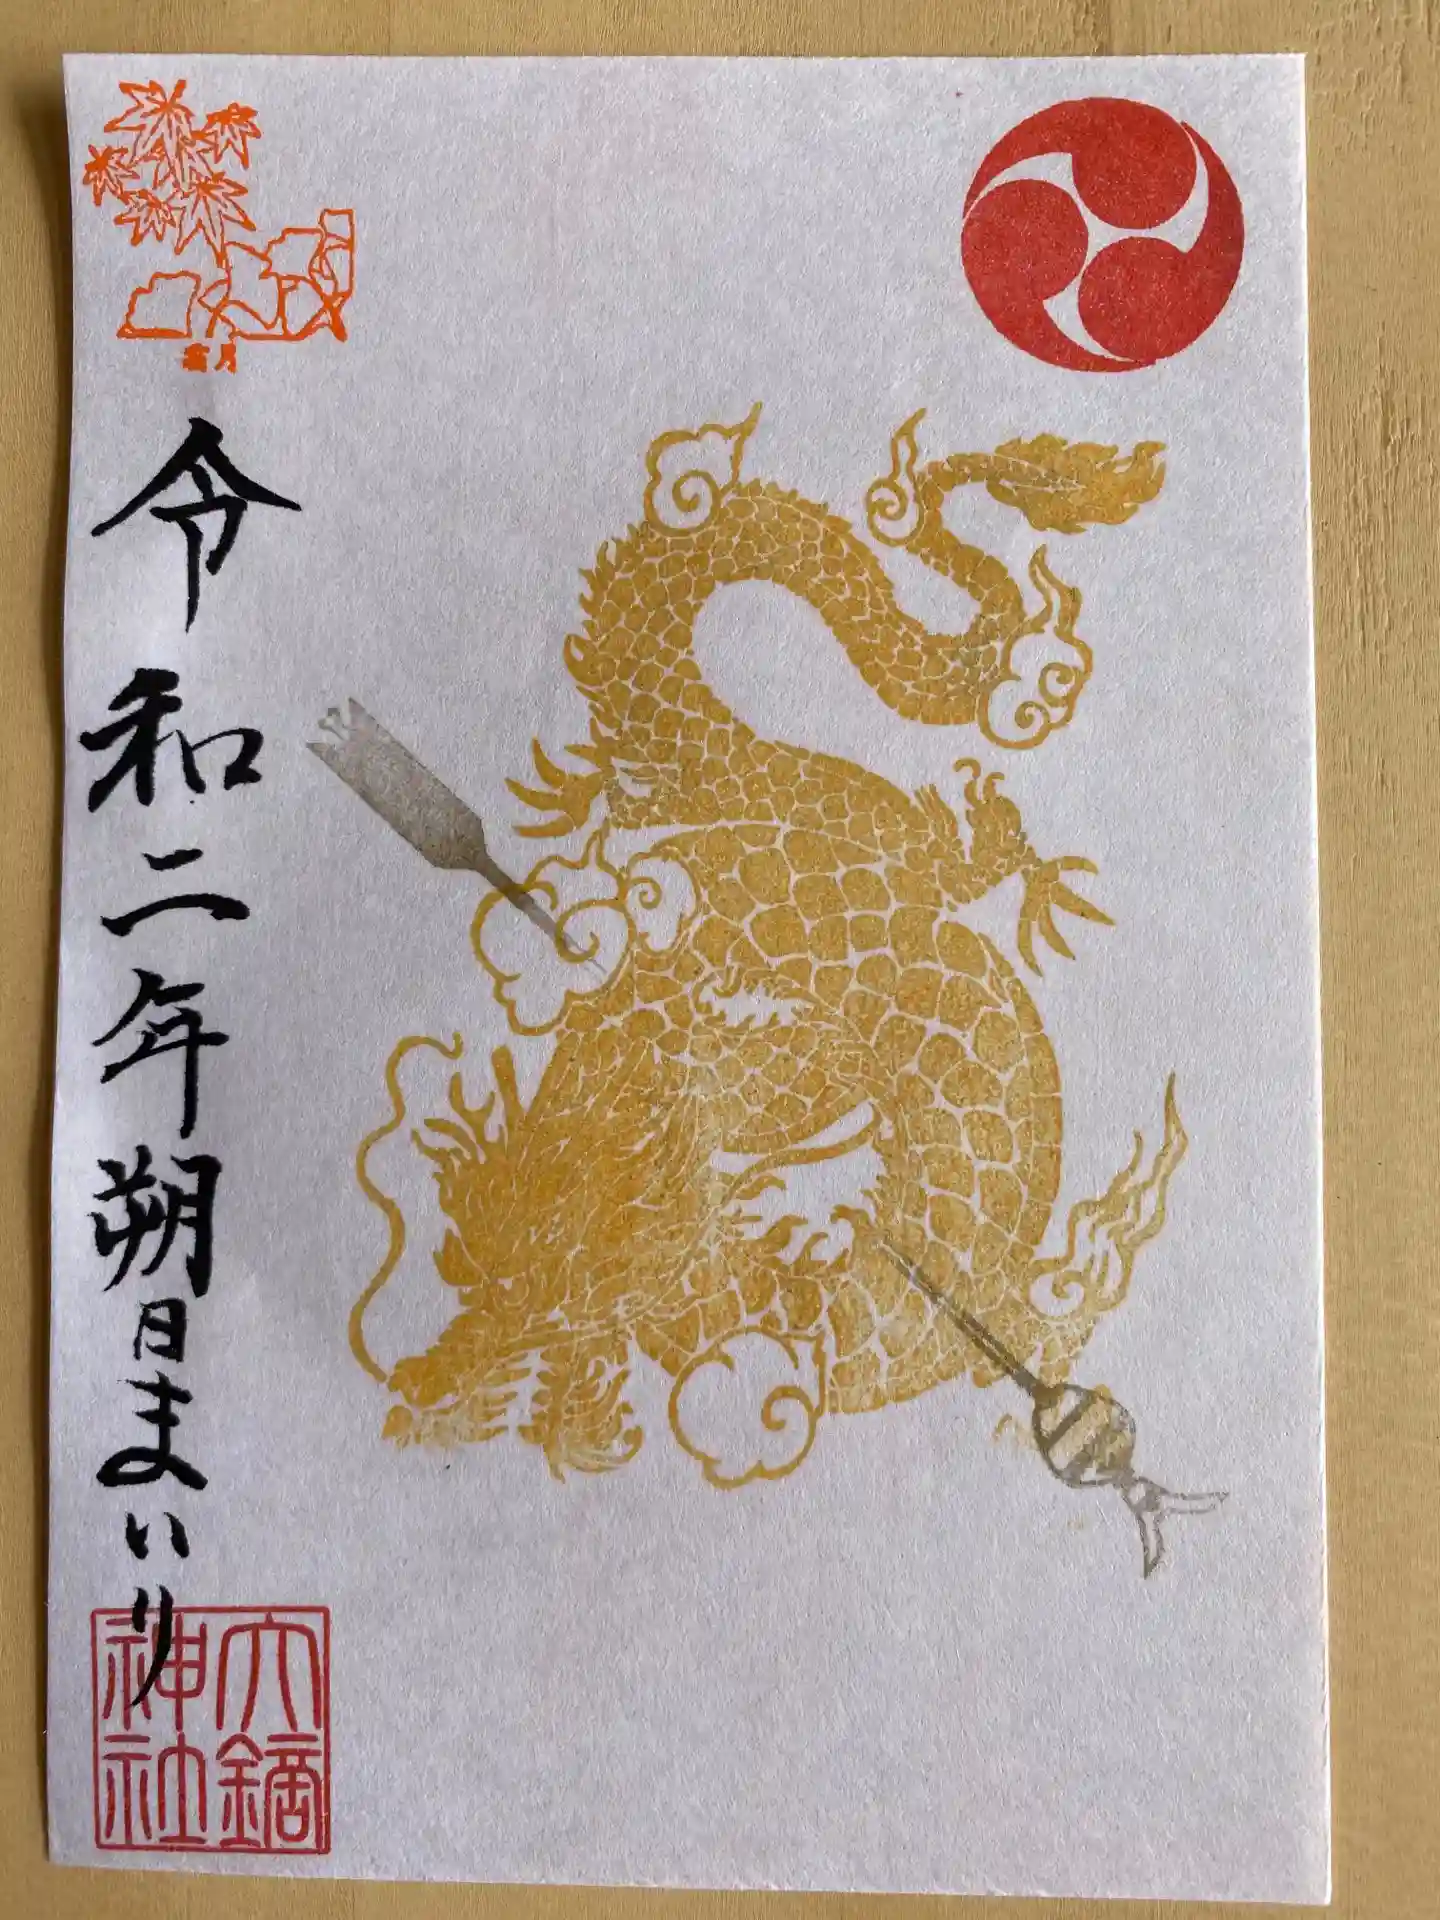 霜月
令和二年朔日まいり
六鏑
神社